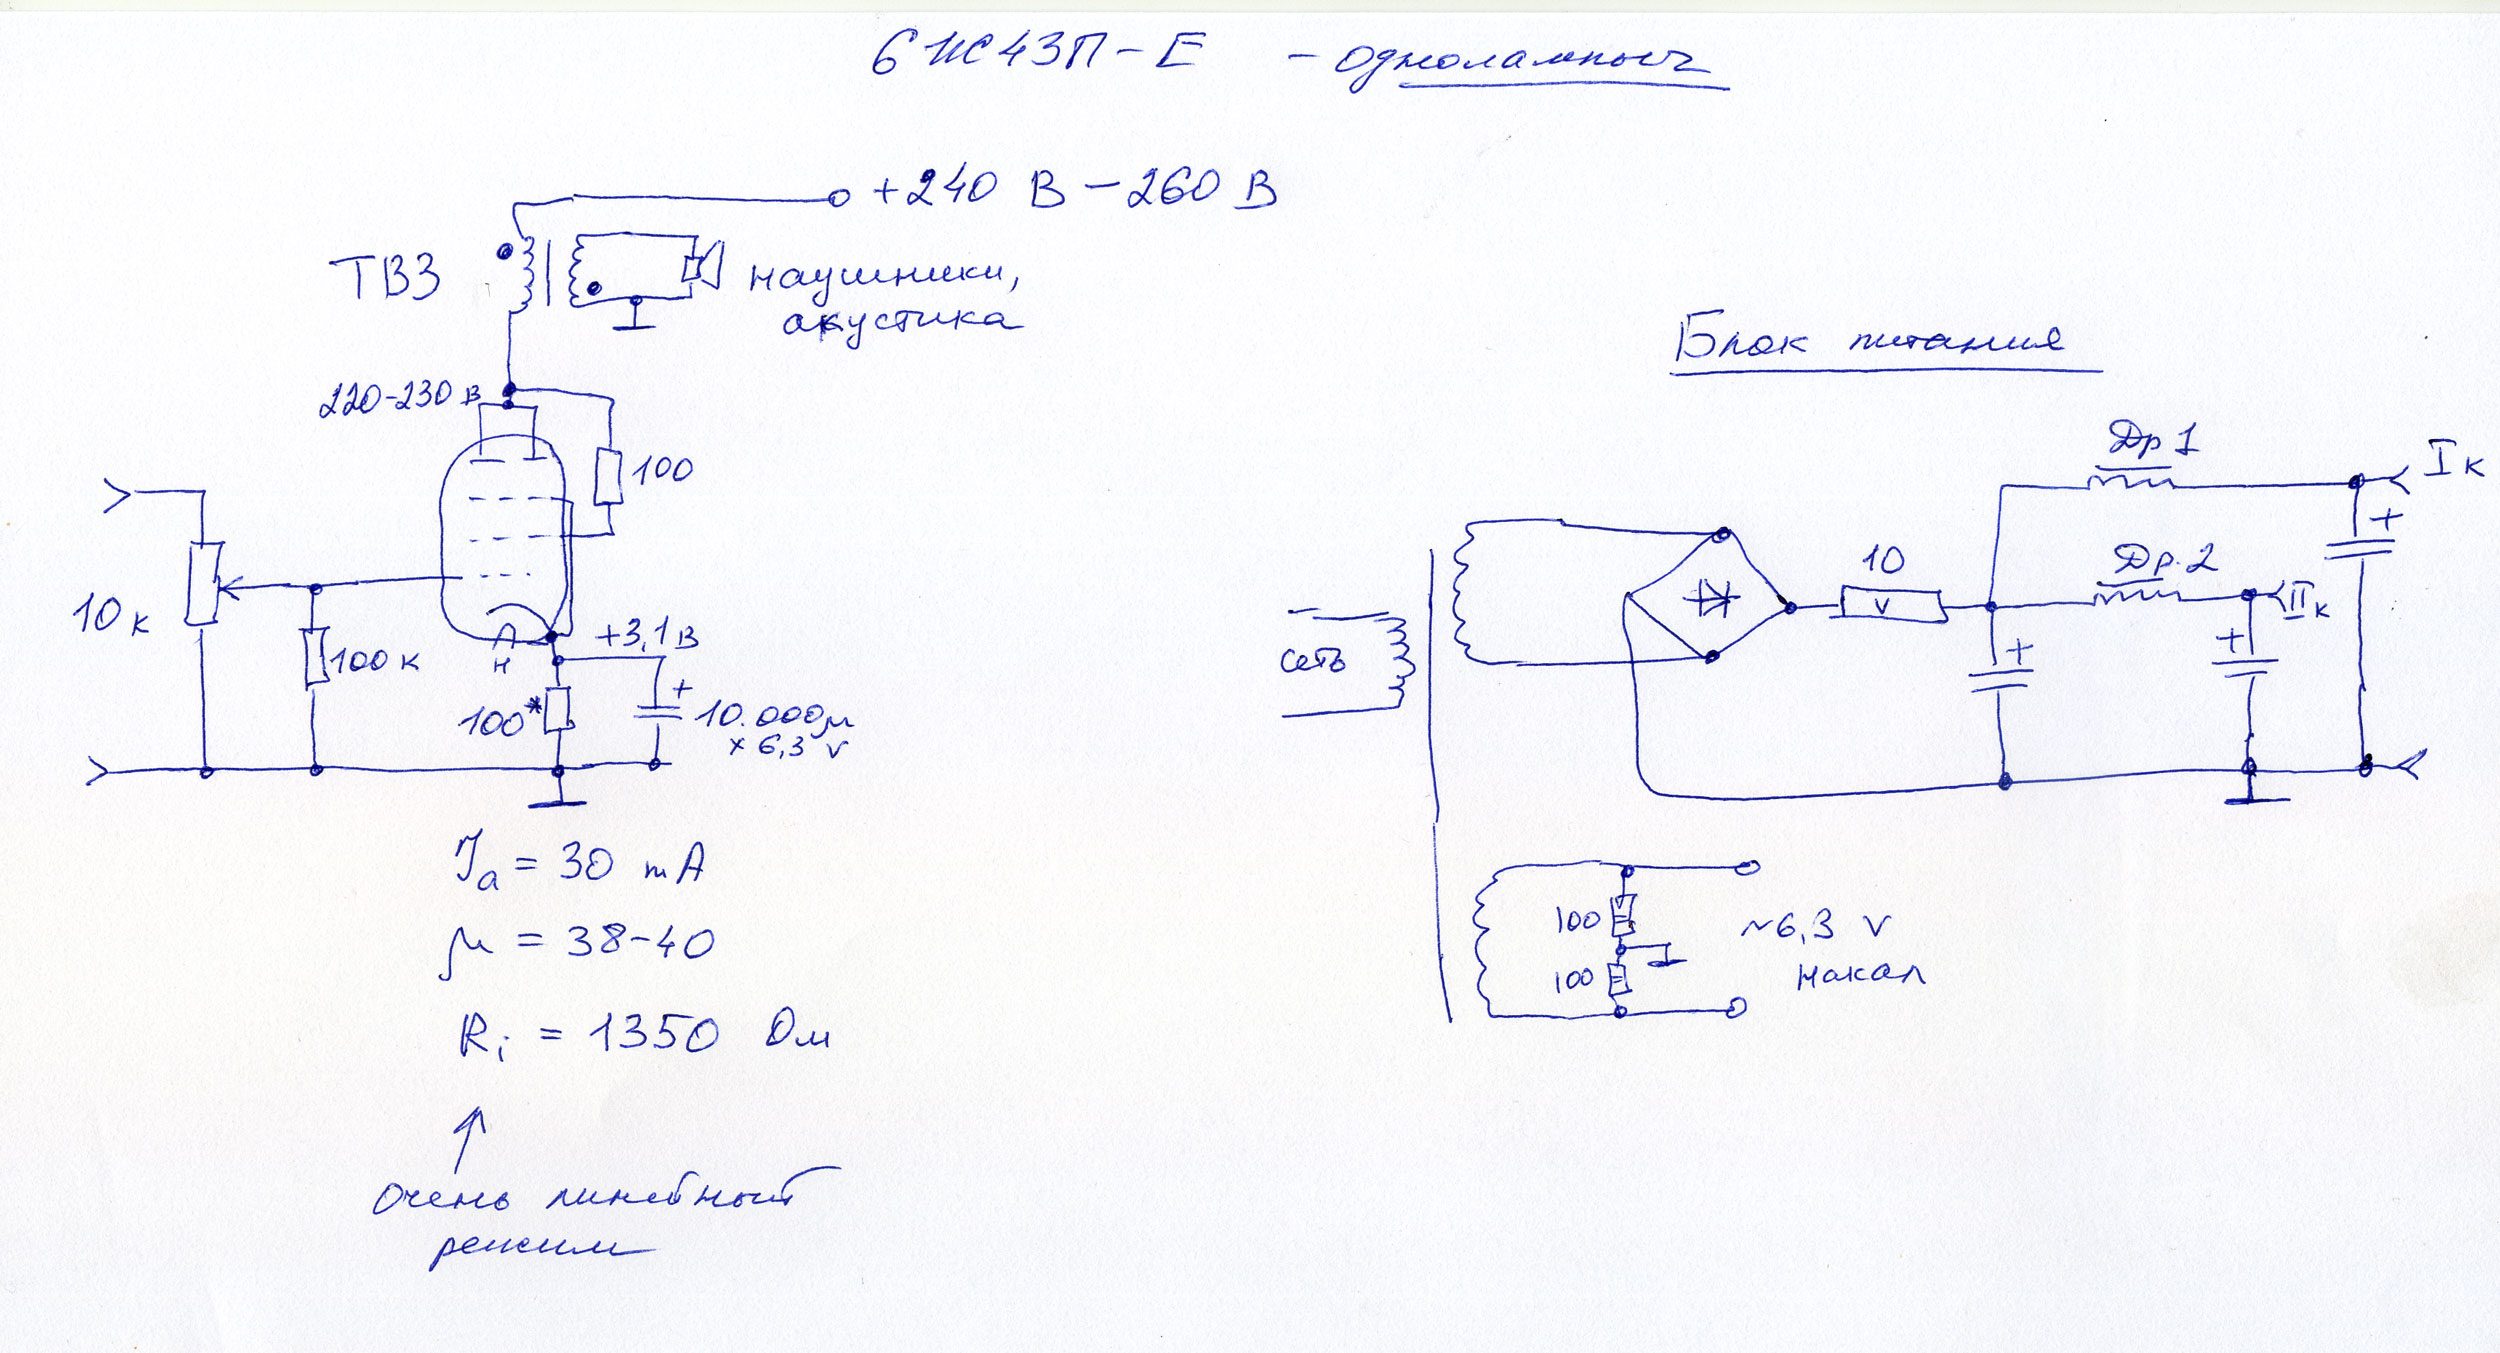 6Ж43П-Е - одноламповый
+240 В - 260 В
ТВЗ
наушники,
акустика
220-230 В
100
10 к
100 к
Н
+3,1 В
100*
+
10.000 μ
× 6,3 V
Ja = 30 mA
μ = 38-40
Ri = 1350 Ом
очень линейный
режим
Блок питания
Др 1
I к
+
Др. 2
II к
+
10
V
+
сеть
100
100
~6,3 V
накал